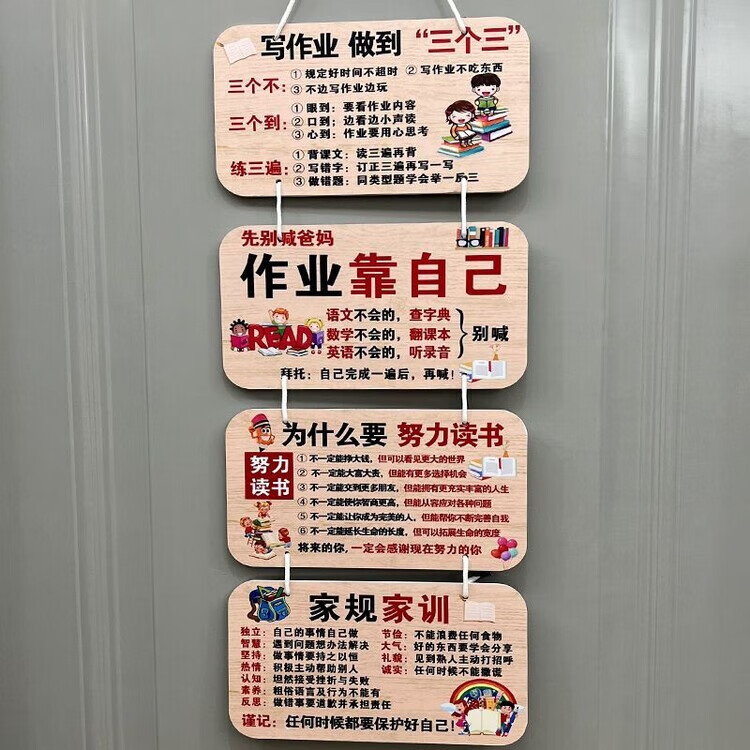 写作业 做到 “三个三”
三个不: ① 规定好时间不超时 ② 写作业不吃东西
③ 不边写作业边玩
三个到: ① 眼到：要看作业内容
② 口到；边看边小声读
③ 心到：作业要用心思考
练三遍: ① 背课文：读三遍再背
② 写错字：订正三遍再写一写
③ 做错题：同类型题学会举一反三
先别喊爸妈
作业靠自己
READ
语文不会的，查字典
数学不会的，翻课本
英语不会的，听录音
别喊
拜托：自己完成一遍后，再喊！
为什么要 努力读书
努力
读书
① 不一定能挣大钱，但可以看见更大的世界
② 不一定能大富大贵，但能有更多选择机会
③ 不一定能交到更多朋友，但能拥有更充实丰富的人生
④ 不一定能使你智商更高，但能从容应对各种问题
⑤ 不一定能让你成为完美的人，但能帮你不断完善自我
⑥ 不一定能延长生命的长度，但可以拓展生命的宽度
将来的你，一定会感谢现在努力的你
家规家训
独立：自己的事情自己做
智慧：遇到问题想办法解决
坚持：做事情要持之以恒
热情：积极主动帮助别人
认知：坦然接受挫折与失败
素养：粗俗语言及行为不能有
反思：做错事要道歉并承担责任
节俭：不能浪费任何食物
大气：好的东西要学会分享
礼貌：见到熟人主动打招呼
诚实：任何时候不能撒谎
谨记：任何时候都要保护好自己！